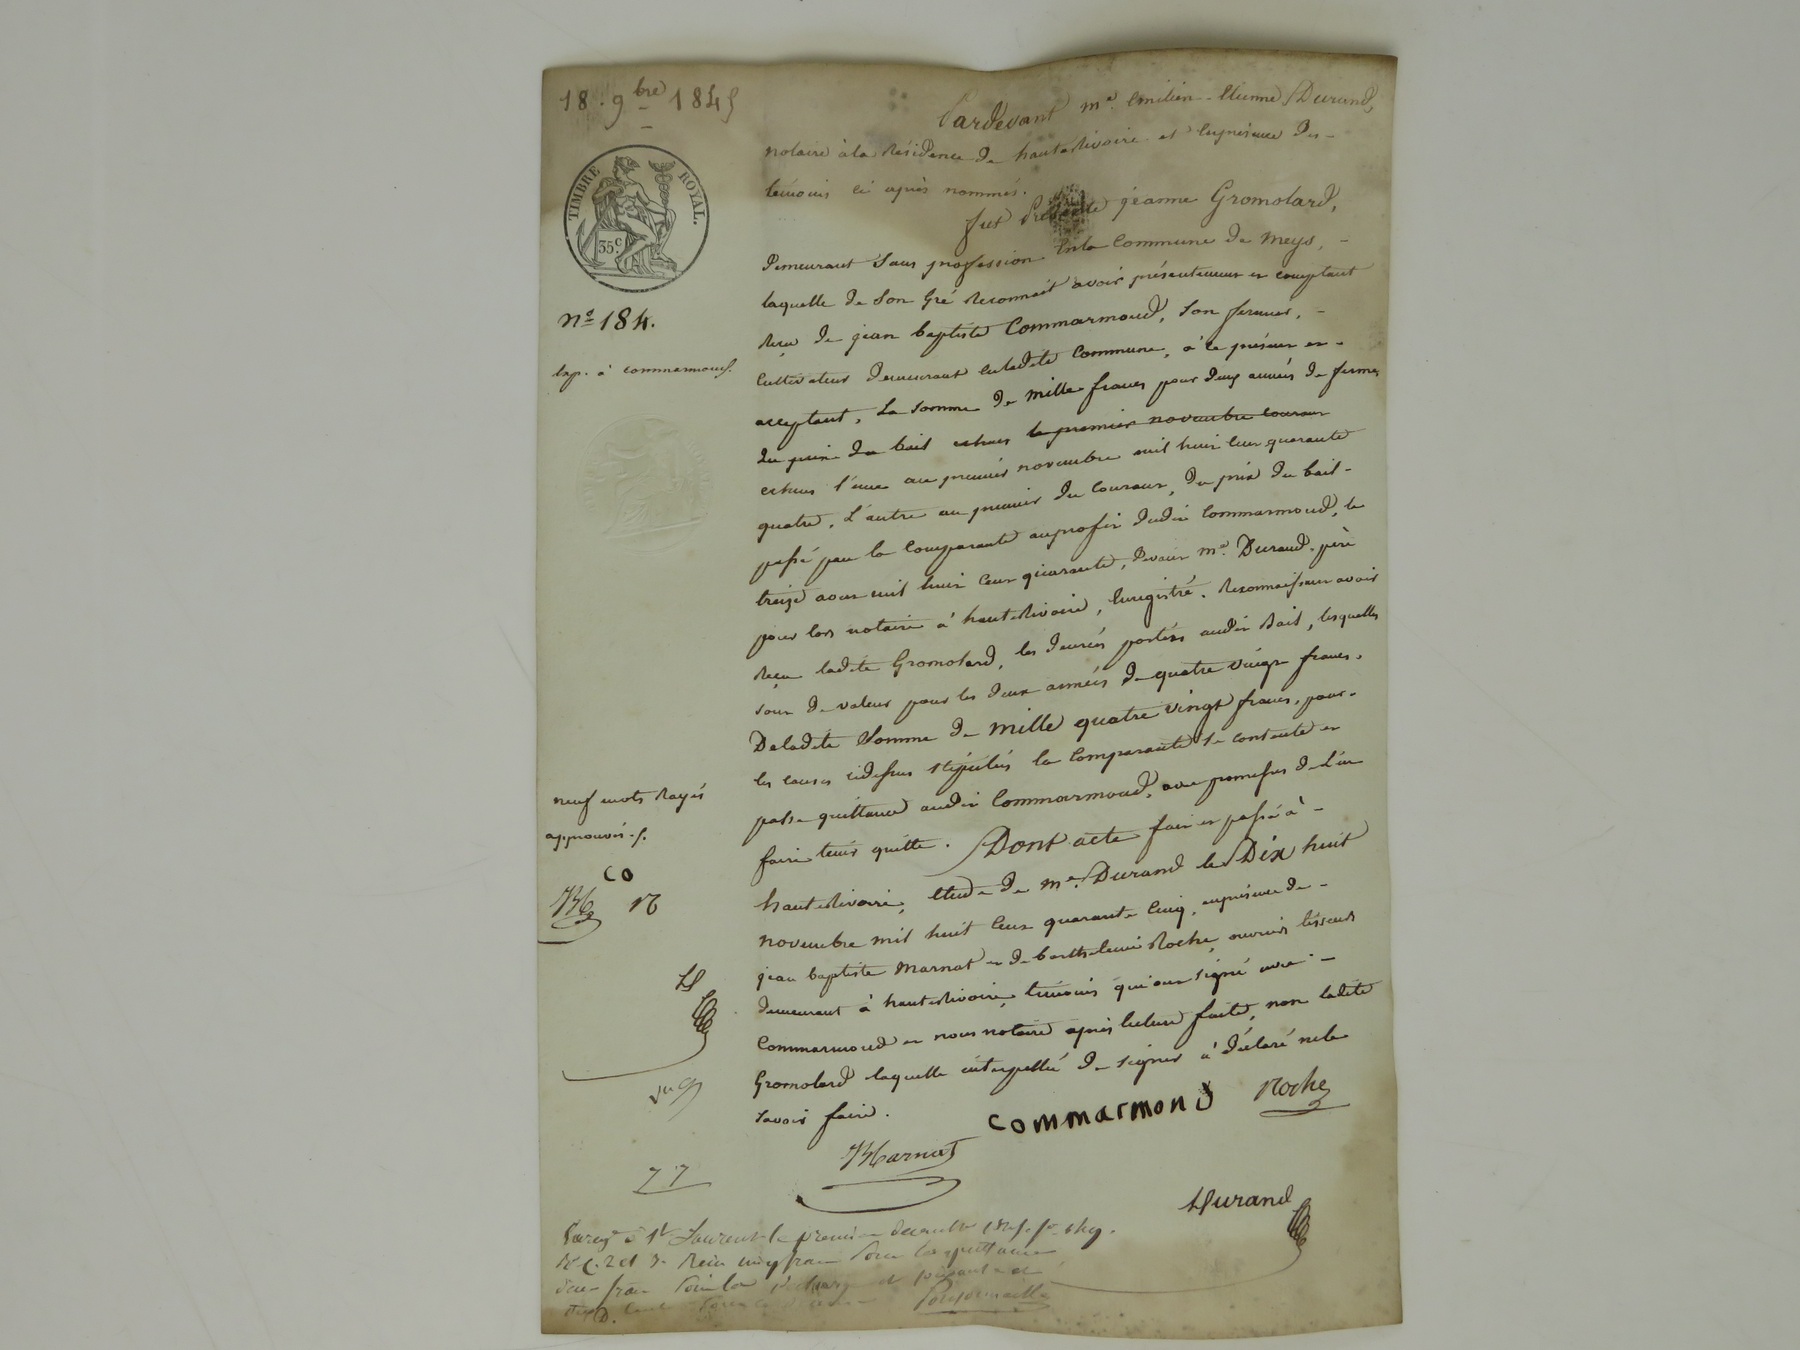 18. 9bre 1845
TIMBRE ROYAL.
35c
No 184.
Exp. à Commarmond.
Pardevant me. Emilien-Etienne Durand,
notaire à la Résidence de hauterivoire et en présence des
témoins ci après nommés.
fut Présente jeanne Gromolard,
demeurant Sans profession en la Commune de Meys,
laquelle de Son Gré Reconnait avoir présentement et comptant
Reçu de jean baptiste Commarmond, Son fermier,
Cultivateur demeurant en ladite Commune, à ce présent et
acceptant, La Somme de mille francs pour deux années de ferme
du prix du bail échues le premier novembre courant
échues l'une au premier novembre mil huit cent quarante
quatre, L'autre au premier du Courant, du prix du bail
passé par la Comparante au profit dudit Commarmond, le
treize aout mil huit Cent quarante, devant me. Durand père
pour lors notaire à hauterivoire, Enregistré. Reconnaissant avoir
Reçu ladite Gromolard, les denrées portées audit Bail, lesquelles
sont de valeur pour les deux années de quatre vingt francs.
De ladite Somme de mille quatre vingt francs, pour
les causes cidessus stipulées la Comparante se contente et
passe quittance audit Commarmond, avec promesses de l'en
faire tenir quitte. Dont acte fait et passé à
hauterivoire, étude de me. Durand le Dix huit
novembre mil huit Cent quarante Cinq, en présence de
jean baptiste Marnat et de barthelemi Roche, ouvriers tisseurs
demeurant à hauterivoire, témoins qui ont signé avec
Commarmond et nous notaire après lecture faite, non ladite
Gromolard laquelle interpellée de signer a déclaré ne le
savoir faire.
neuf mots Rayés
approuvés.
CO
M R
D
Commarmond Roche
Marnat
77
Durand
Enregé à St Laurent le premier decembre 1845. fo
C. 2 et 3. Reçu cinq francs pour la quittance
deux francs pour la décharge et